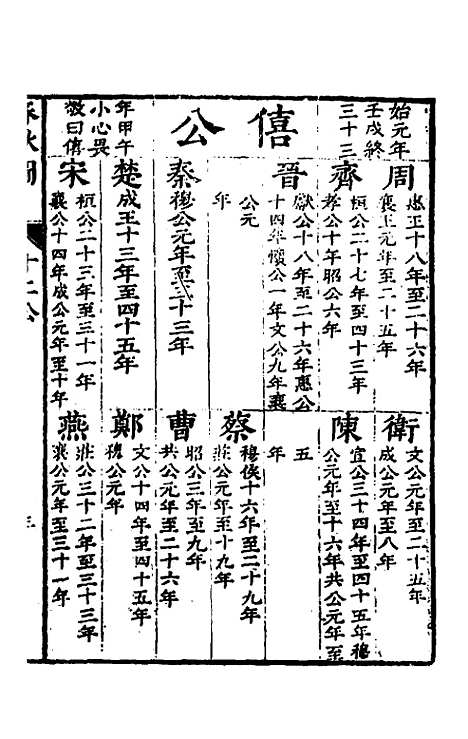 始元年
壬戌終
三十三
僖公
年甲午
小心畏
敬曰僖
周
惠王十八年至二十六年
襄王元年至二十五年
齊
桓公二十七年至四十三年
孝公十年昭公六年
晉
獻公十八年至二十六年惠公
十四年懷公一年文公九年襄
公元
年
秦
穆公元年至三十三年
楚
成王十三年至四十五年
宋
桓公二十三年至三十一年
襄公十四年成公元年至十年
衛
文公元年至二十五年
成公元年至八年
陳
宣公三十四年至四十五年穆
公元年至十六年共公元年至
五
年
蔡
穆侯十六年至二十九年
莊公元年至十九年
曹
昭公三年至九年
共公元年至二十六年
鄭
文公十四年至四十五年
穆公元年
燕
莊公三十二年至三十三年
襄公元年至三十一年
十二公